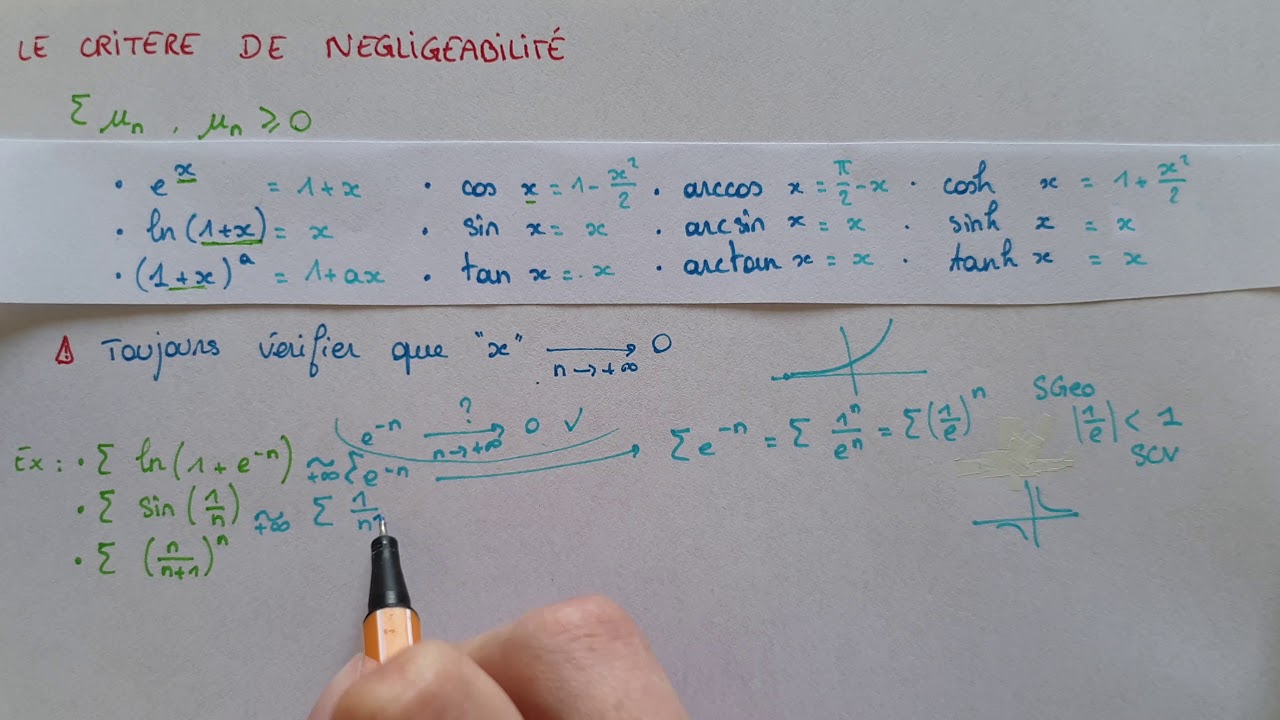 LE CRITERE DE NEGLIGEABILITÉ
Σ μₙ , μₙ ⩾ 0
• eˣ = 1+x • cos x = 1-x²/2 • arccos x = π/2-x • cosh x = 1+x²/2
• ln(1+x) = x • sin x = x • arcsin x = x • sinh x = x
• (1+x)ᵃ = 1+ax • tan x = x • arctan x = x • tanh x = x
⚠ Toujours vérifier que "x" ⟶ 0
n→+∞
e⁻ⁿ ⟶ 0 ✓
?
n→+∞
Σ e⁻ⁿ = Σ 1ⁿ/eⁿ = Σ(1/e)ⁿ SGeo |1/e| < 1
SCV
Ex : • Σ ln(1+e⁻ⁿ) ~ Σ e⁻ⁿ
+∞
• Σ sin(1/n) ~ Σ 1/n¹
+∞
• Σ (n/n+1)ⁿ